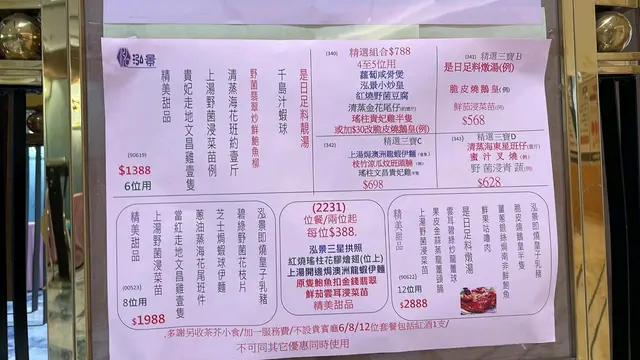 泓景
是日足料靚湯
千島汁蝦球
野菌翡翠炒鮮鮑魚柳
清蒸海花班約壹斤
上湯野菌浸菜苗例
貴妃走地文昌雞壹隻
精美甜品
(90619)
$1388
6位用
(340)
精選組合$788
4至5位用
蘿蔔咸骨煲
泓景小炒皇
紅燒野菌豆腐
清蒸金花尾仔
瑤柱貴妃雞半隻
或加$30改脆皮燒鵝皇(例)
(341) 精選三寶B
是日足料燉湯(例)
脆皮燒鵝皇(例)
鮮茄浸菜苗(例)
$568
(342)
精選三寶C
上湯焗澳洲龍蝦伊麵
枝竹涼瓜炆班頭腩(例)
瑤柱文昌貴妃雞半隻
$698
(343) 精選三寶D
清蒸海東星班仔
蜜汁叉燒(例)
野菌浸青蔬(例)
$628
泓景即燒皇子乳豬
碧綠野菌花枝片
芝士焗蝦球伊麵
蔥油蒸海花尾班件
當紅走地文昌雞壹隻
上湯野菌浸菜苗
精美甜品
(90523)
8位用
$1988
(2231)
位餐/兩位起
每位$388.
泓景三星拱照
紅燒瑤柱花膠燴翅(位上)
上湯開邊焗澳洲龍蝦伊麵
原隻鮑魚扣金錢翡翠
鮮茄雲耳浸菜苗
精美甜品
泓景即燒皇子乳豬
脆皮燒鵝皇半隻
薑蔥銀絲焗南非鮮鮑魚
鮮果咕嚕肉
是日足料燉湯
雲耳碧綠炒龍躉球
果皮金蒜蒸龍躉頭腩
上湯野菌浸菜苗
精美甜品
(90622)
12位用
$2888
.多謝另收茶芥小食/加一服務費/不設貴賓廳6/8/12位套餐包括紅酒1支/
不可同其它優惠同時使用